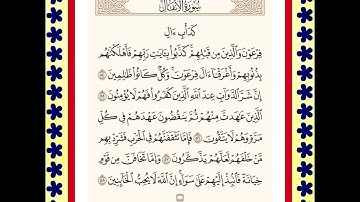 سُورَةُ الأَنفَالِ
كَدَأْبِ ءَالِ
فِرْعَوْنَ وَالَّذِينَ مِن قَبْلِهِمْ كَذَّبُوا بِـَٔايَـٰتِ رَبِّهِمْ فَأَهْلَكْنَـٰهُم
بِذُنُوبِهِمْ وَأَغْرَقْنَا ءَالَ فِرْعَوْنَ وَكُلٌّ كَانُوا ظَـٰلِمِينَ ٥٤
إِنَّ شَرَّ الدَّوَآبِّ عِندَ اللَّهِ الَّذِينَ كَفَرُوا فَهُمْ لَا يُؤْمِنُونَ ٥٥
الَّذِينَ عَـٰهَدتَّ مِنْهُمْ ثُمَّ يَنقُضُونَ عَهْدَهُمْ فِي كُلِّ
مَرَّةٍ وَهُمْ لَا يَتَّقُونَ ٥٦ فَإِمَّا تَثْقَفَنَّهُمْ فِي الْحَرْبِ فَشَرِّدْ بِهِم
مَّنْ خَلْفَهُمْ لَعَلَّهُمْ يَذَّكَّرُونَ ٥٧ وَإِمَّا تَخَافَنَّ مِن قَوْمٍ
خِيَانَةً فَانبِذْ إِلَيْهِمْ عَلَىٰ سَوَآءٍ إِنَّ اللَّهَ لَا يُحِبُّ الْخَآئِنِينَ ٥٨